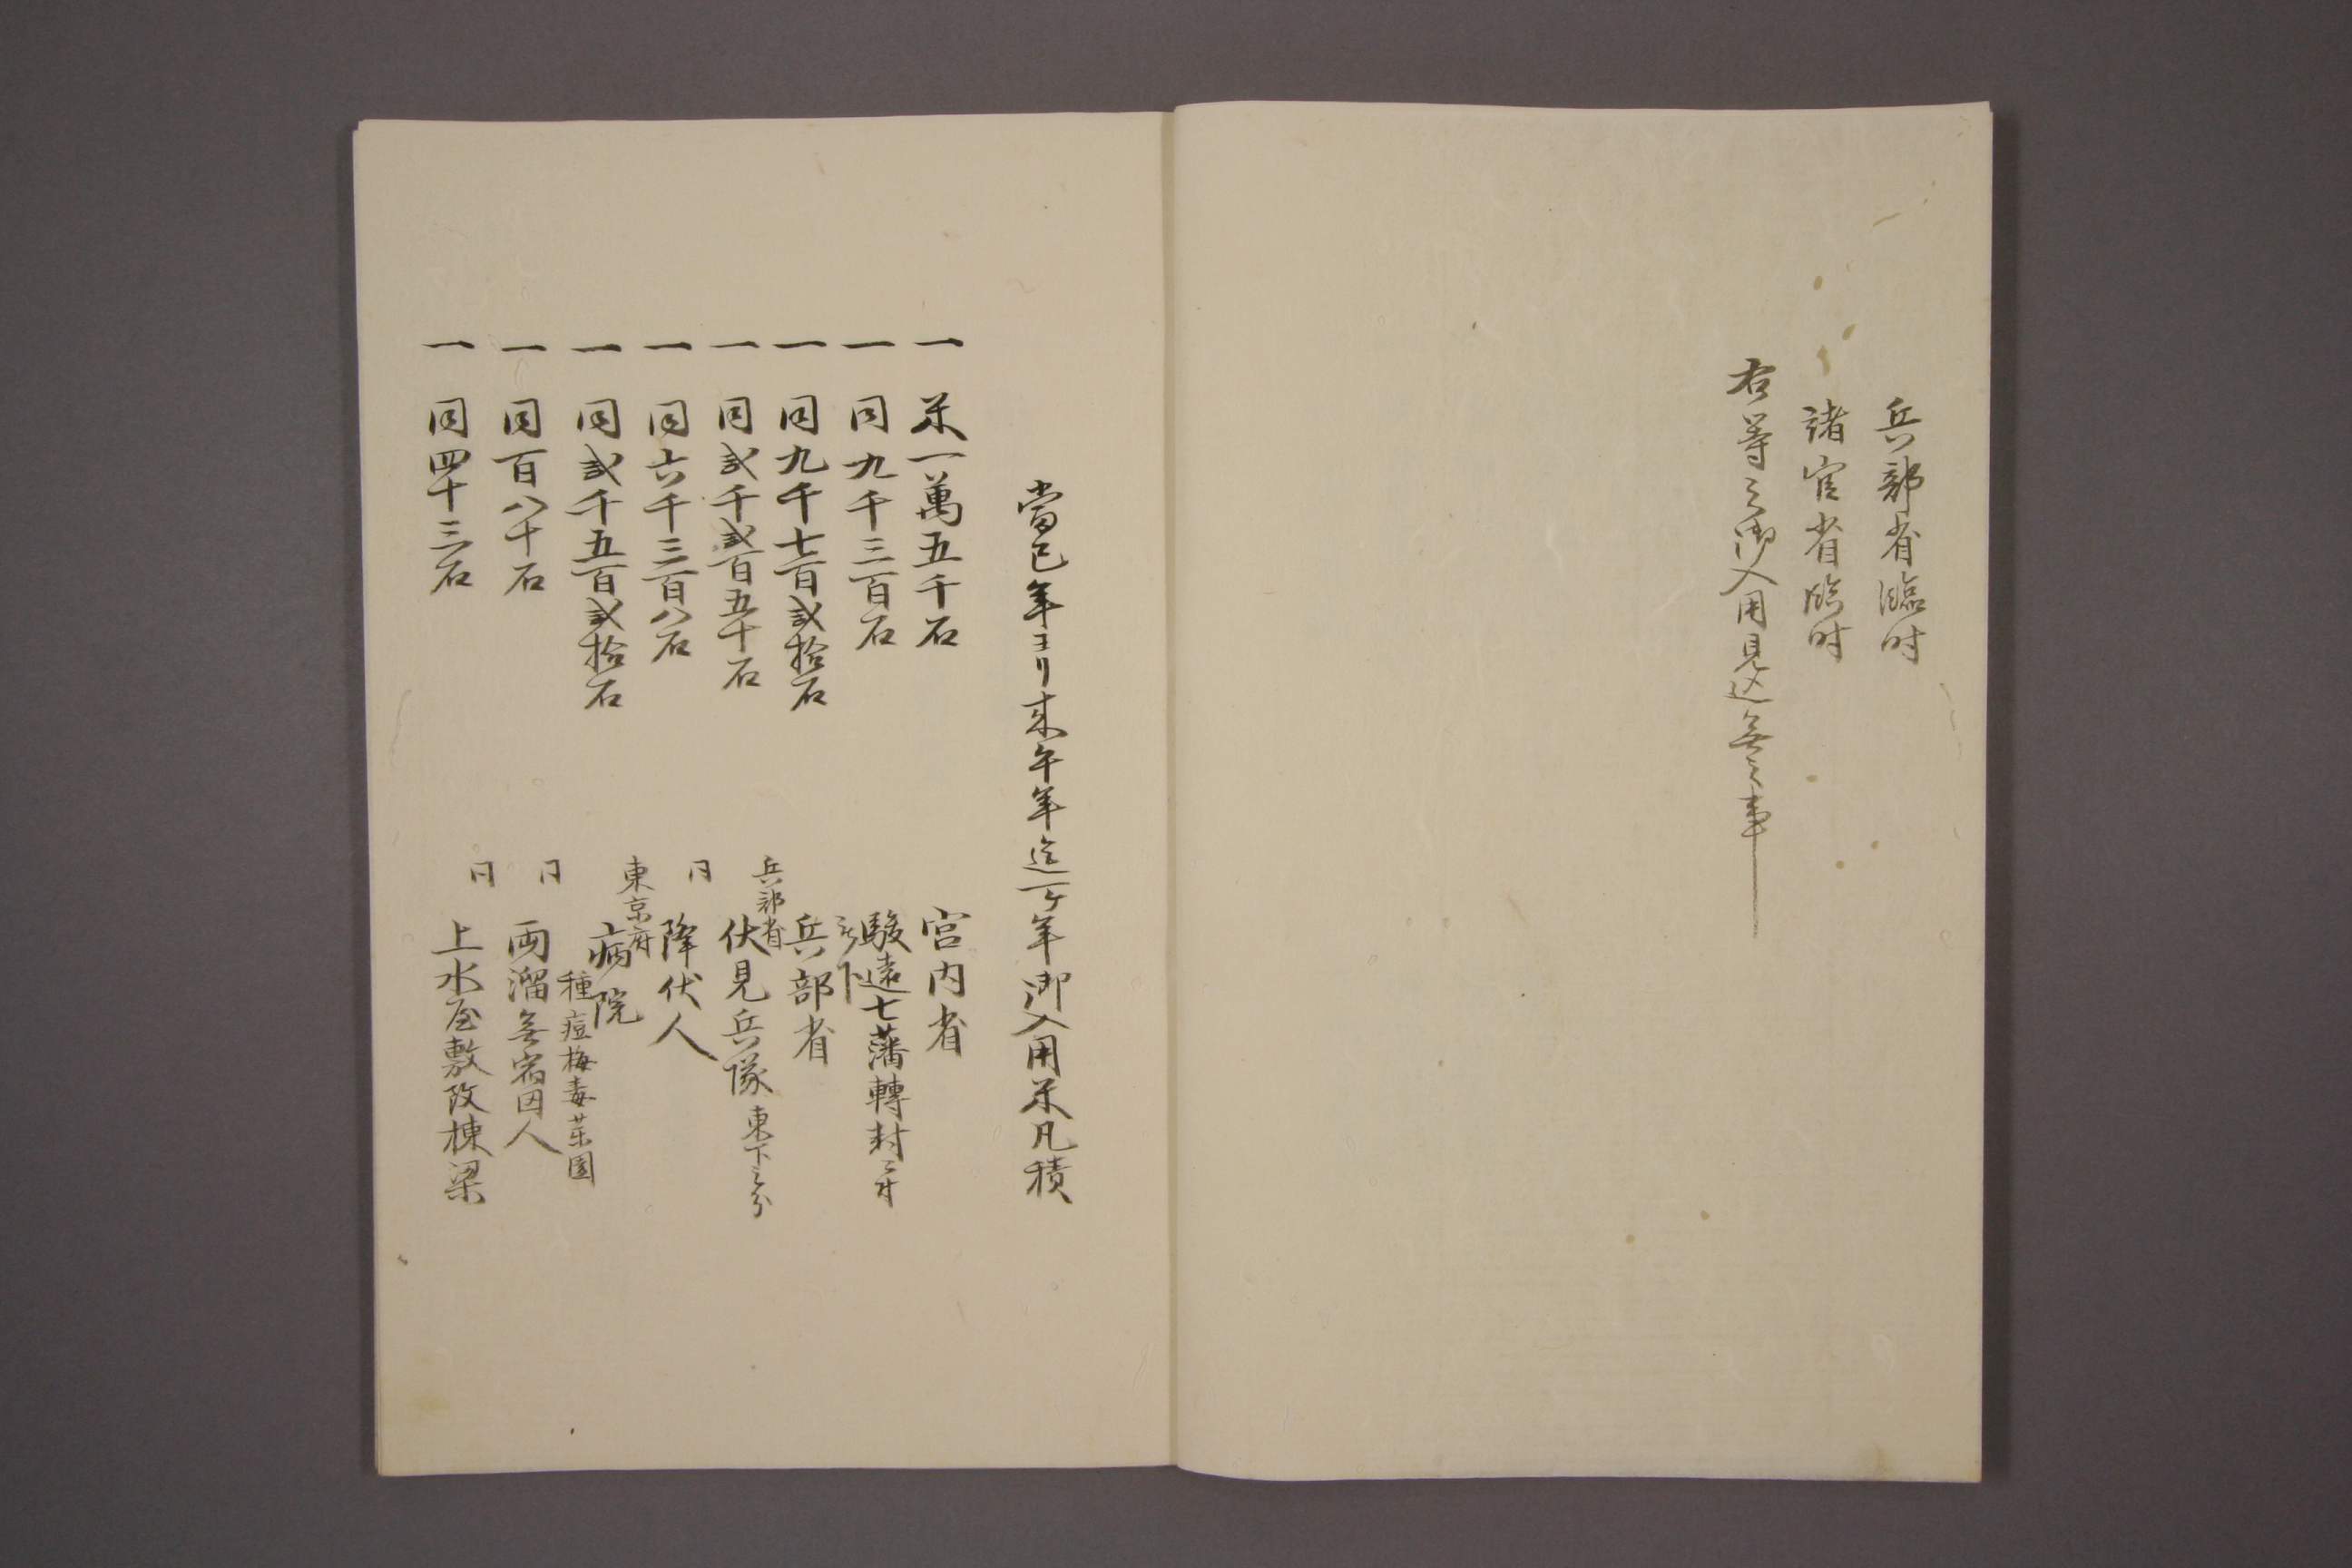 兵部省臨時
諸官省臨時
右等之御入用見込無之事
當巳年ヨリ来午年迄一ケ年御入用米凡積
一 米一萬五千石 宮内省
一 同九千三百石 駿遠七藩轉封ニ付被下
一 同九千七百弐拾石 兵部省
一 同弐千弐百五十石 兵部省 伏見兵隊東下之分
一 同六千三百八石 同 降伏人
一 同弐千五百弐拾石 東京府 病院 種痘梅毒薬園
一 同百八十石 同 両溜無宿囚人
一 同四十三石 同 上水屋敷改棟梁